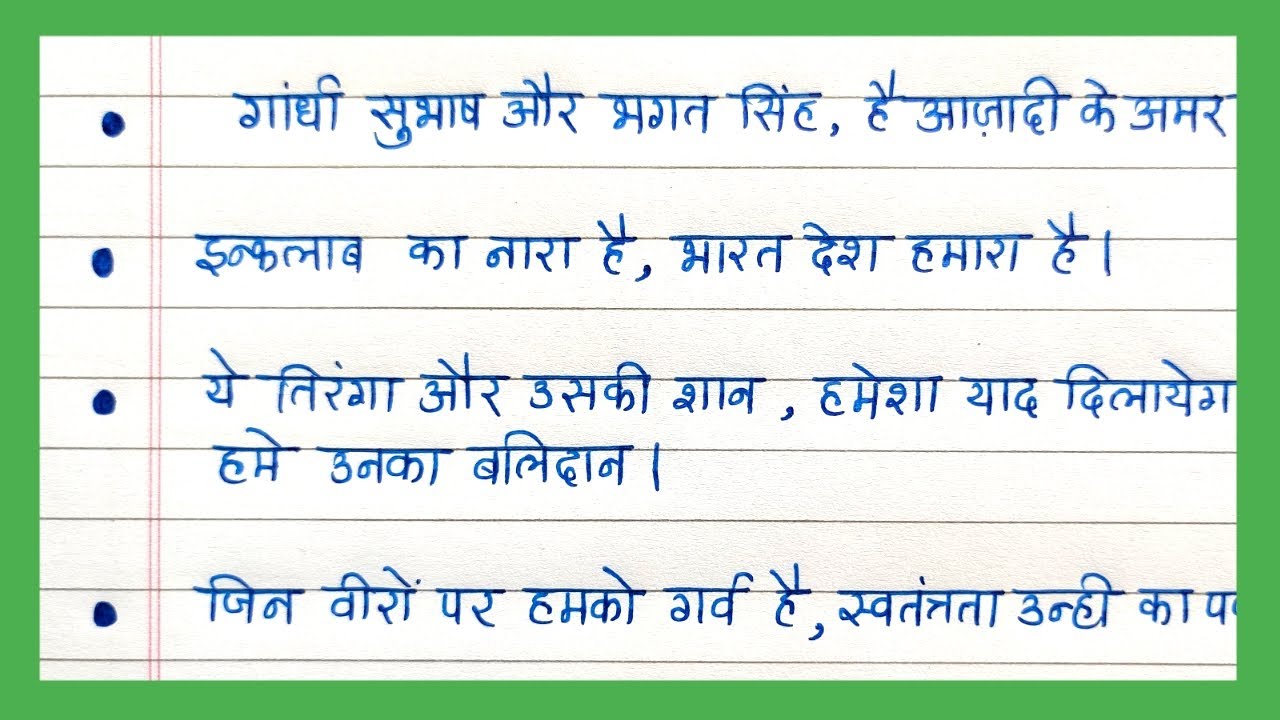 गांधी सुभाष और भगत सिंह, है आज़ादी के अमर
इन्कलाब का नारा है, भारत देश हमारा है।
ये तिरंगा और उसकी शान, हमेशा याद दिलायेग
हमे उनका बलिदान।
जिन वीरों पर हमको गर्व है, स्वतंत्रता उन्ही का